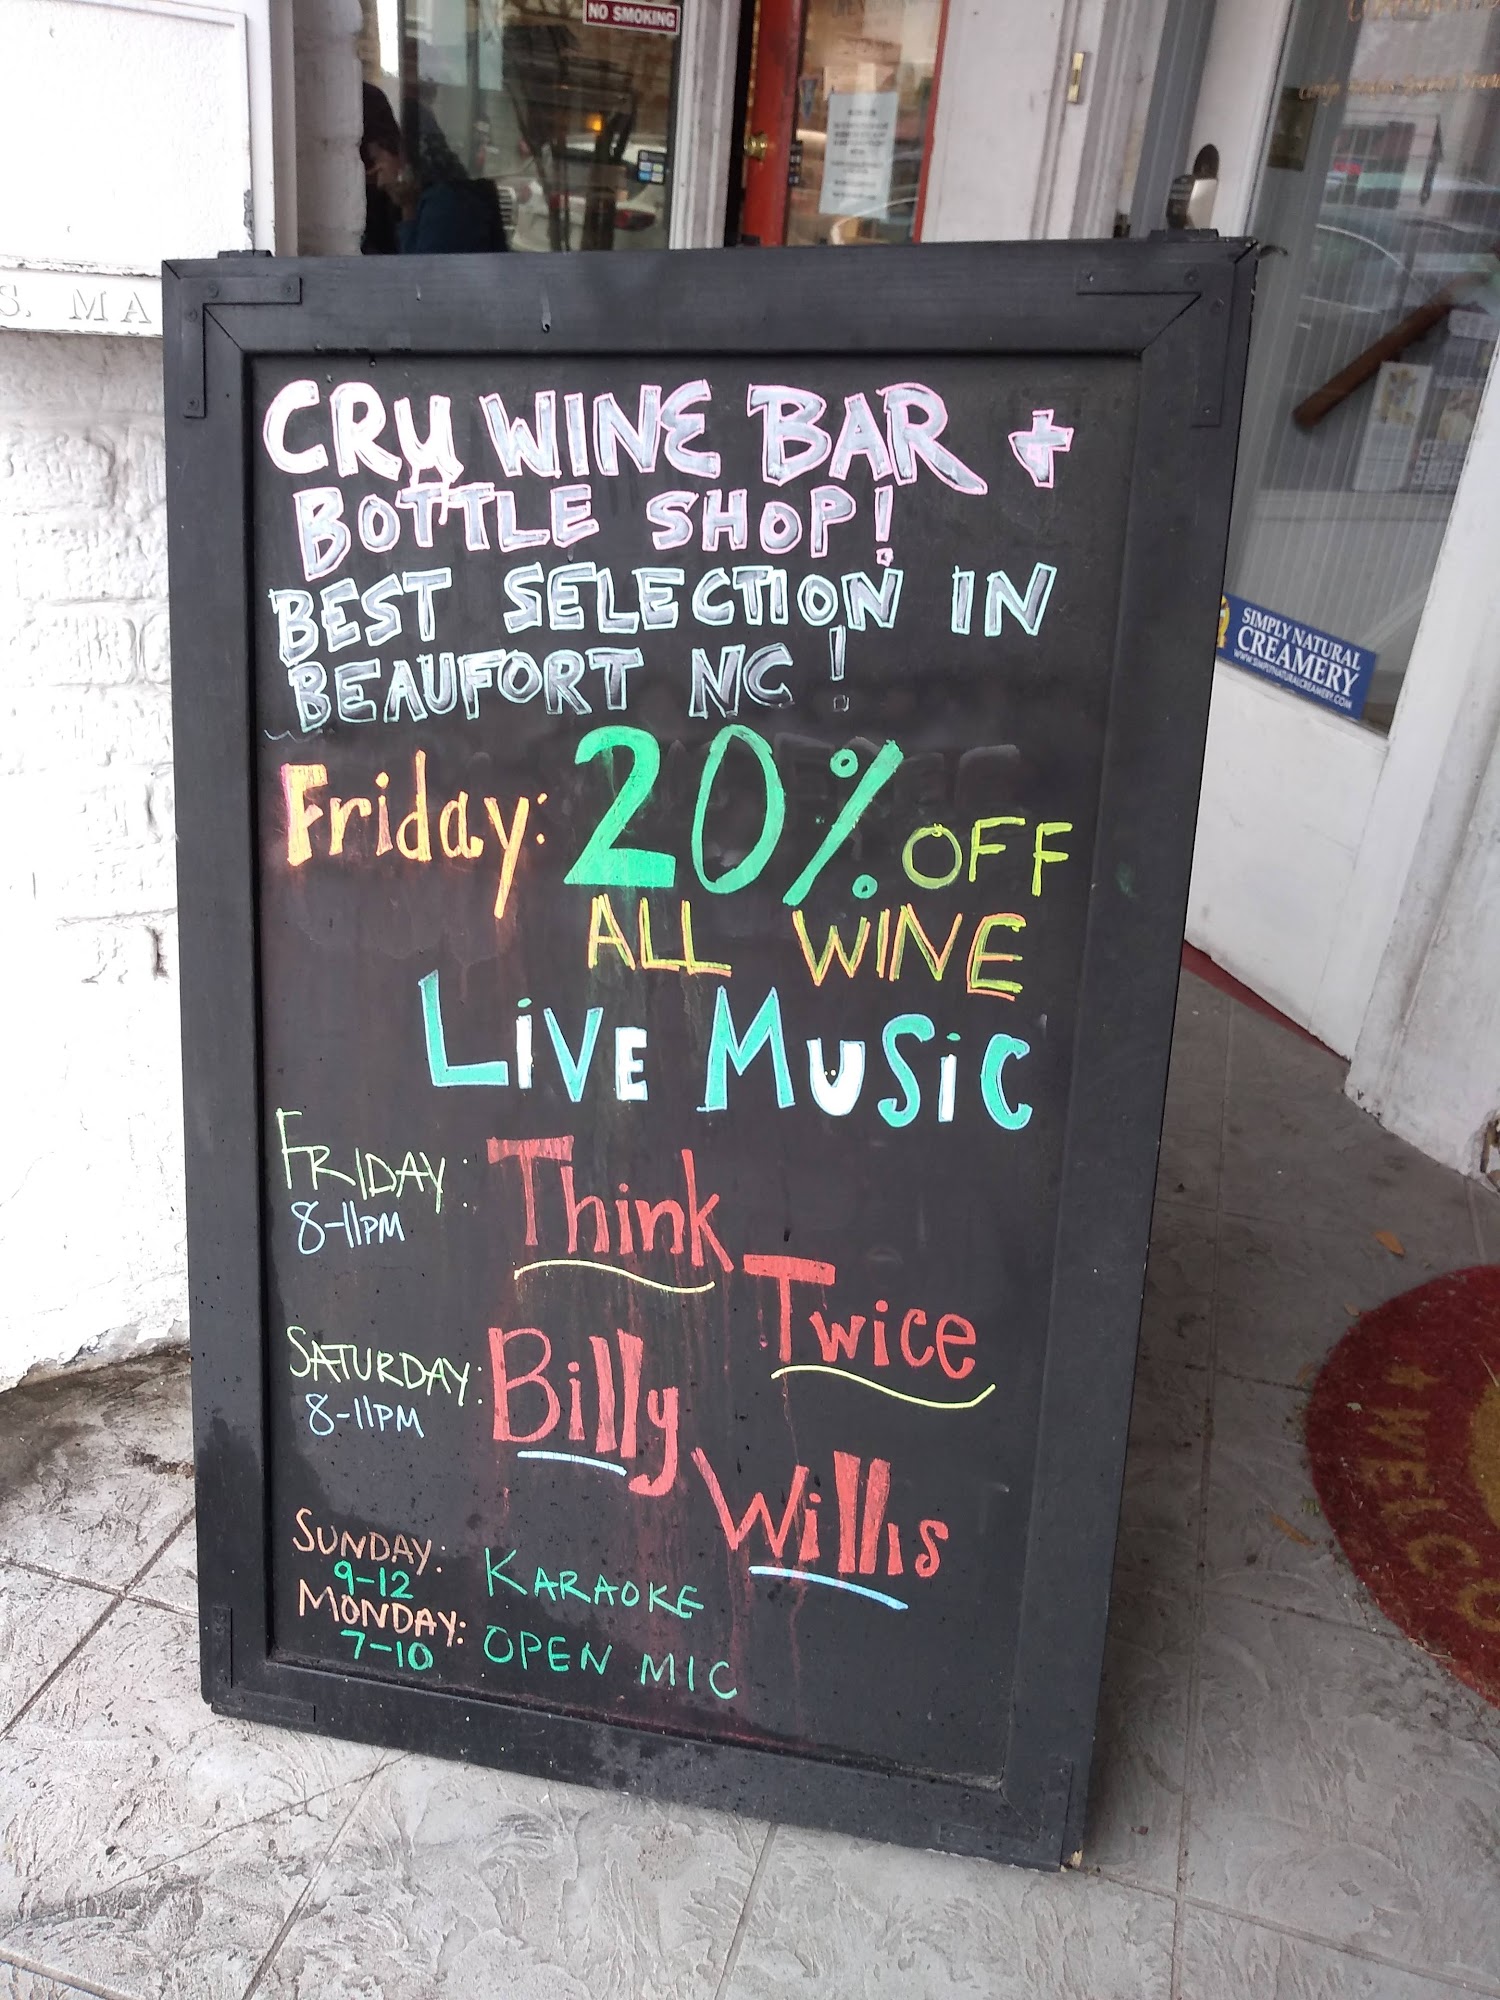 NO SMOKING
S. MA
CRU WINE BAR +
BOTTLE SHOP!
BEST SELECTION IN
BEAUFORT NC!
Friday: 20% OFF
ALL WINE
LiVE MUSiC
FRIDAY: Think
8-11PM
Twice
SATURDAY: Billy
8-11PM
Willis
SUNDAY: KARAOKE
9-12
MONDAY: OPEN MIC
7-10
SIMPLY NATURAL
CREAMERY
WWW.SIMPLYNATURALCREAMERY.COM
WELCO